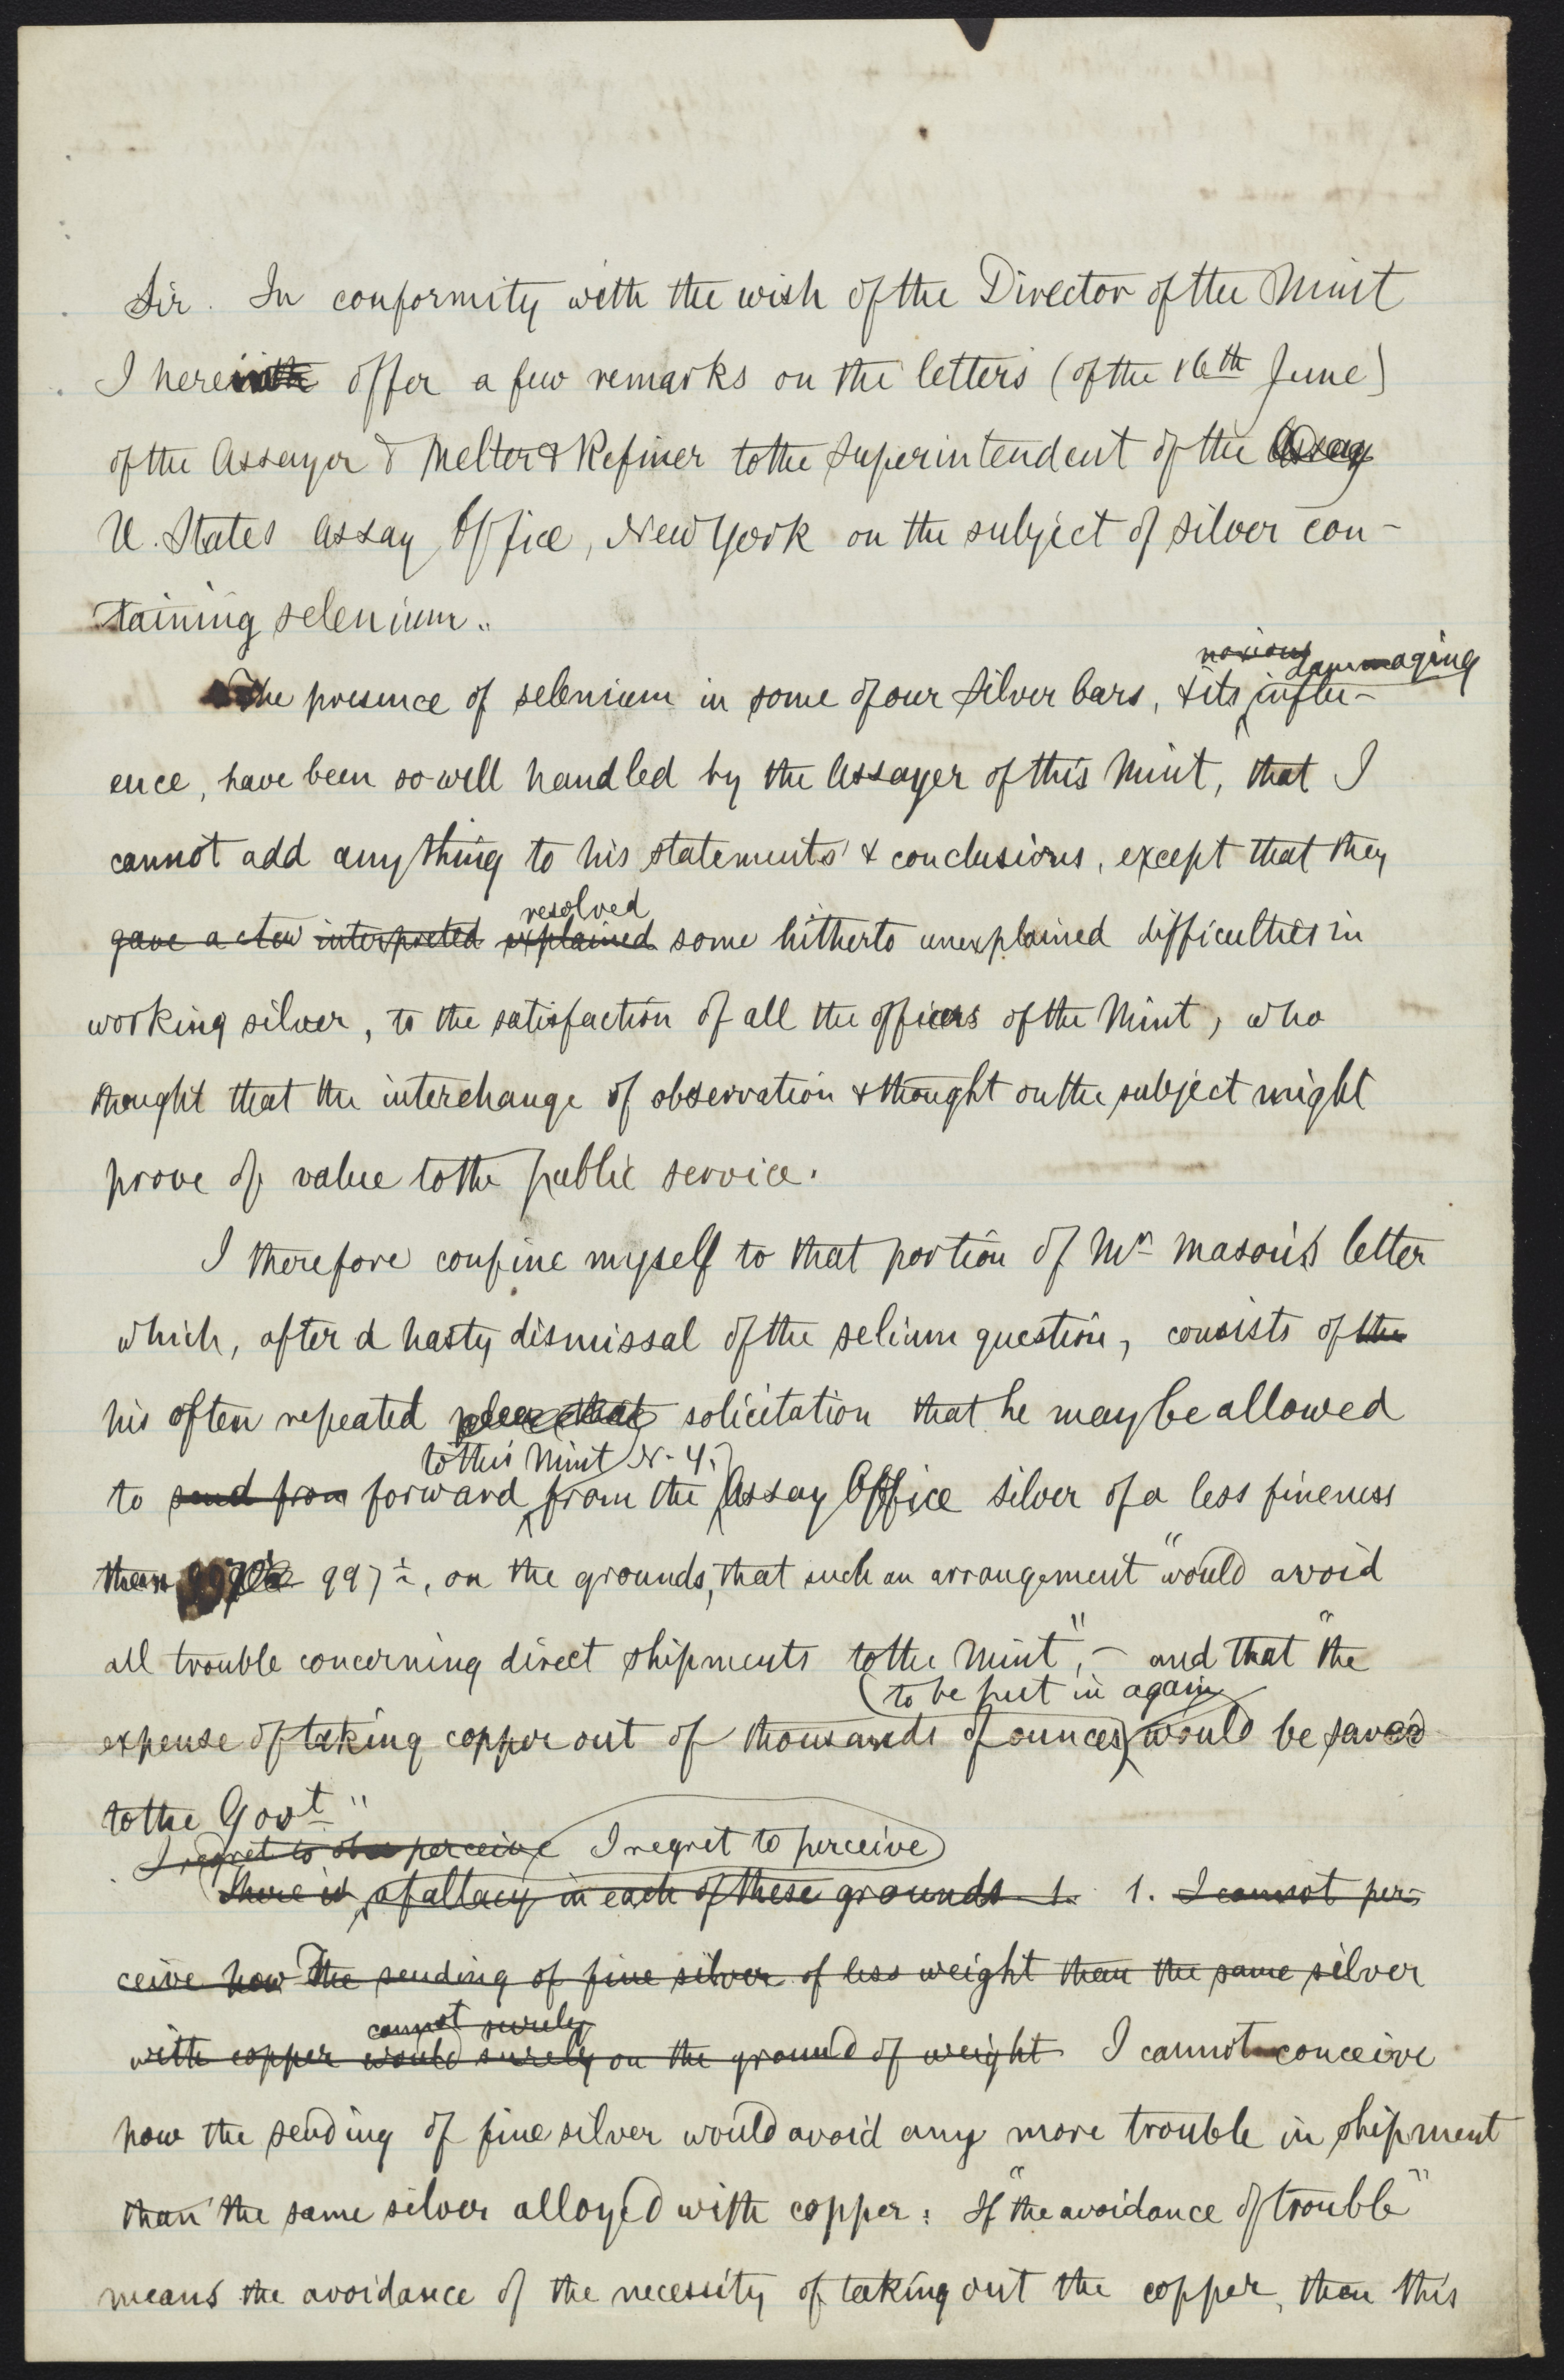 Sir. In conformity with the wish of the Director of the Mint
I herewith offer a few remarks on the letters (of the 16th June)
of the Assayer & Melter & Refiner to the Superintendent of the Assay
U. States Assay Office, New York on the subject of silver con-
taining selenium.
noxious dammaging
The presence of selenium in some of our silver bars, & its influ-
ence, have been so well handled by the Assayer of this Mint, that I
cannot add any thing to his statements & conclusions, except that they
resolved
gave a clew interpreted explained some hitherto unexplained difficulties in
working silver, to the satisfaction of all the officers of the Mint, who
thought that the interchange of observation & thought on the subject might
prove of value to the public service.
I therefore confine myself to that portion of Mr Mason's letter
which, after a hasty dismissal of the selium question, consists of the
his often repeated plea that solicitation that he may be allowed
to this Mint N. Y.
to send from forward from the Assay Office silver of a less fineness
than 997½, on the grounds, that such an arrangement "would avoid
all trouble concerning direct shipments to the Mint", - and that "the
(to be put in again
expense of taking copper out of thousands of ounces) would be saved
to the Govt"
I regret to perceive I regret to perceive
There is a fallacy in each of these grounds 1. 1. I cannot per-
ceive how The sending of fine silver of less weight than the same silver
cannot surely
with copper would surely on the ground of weight I cannot conceive
how the sending of fine silver would avoid any more trouble in shipment
than the same silver alloyed with copper: If "the avoidance of trouble"
means the avoidance of the necessity of taking out the copper, then this